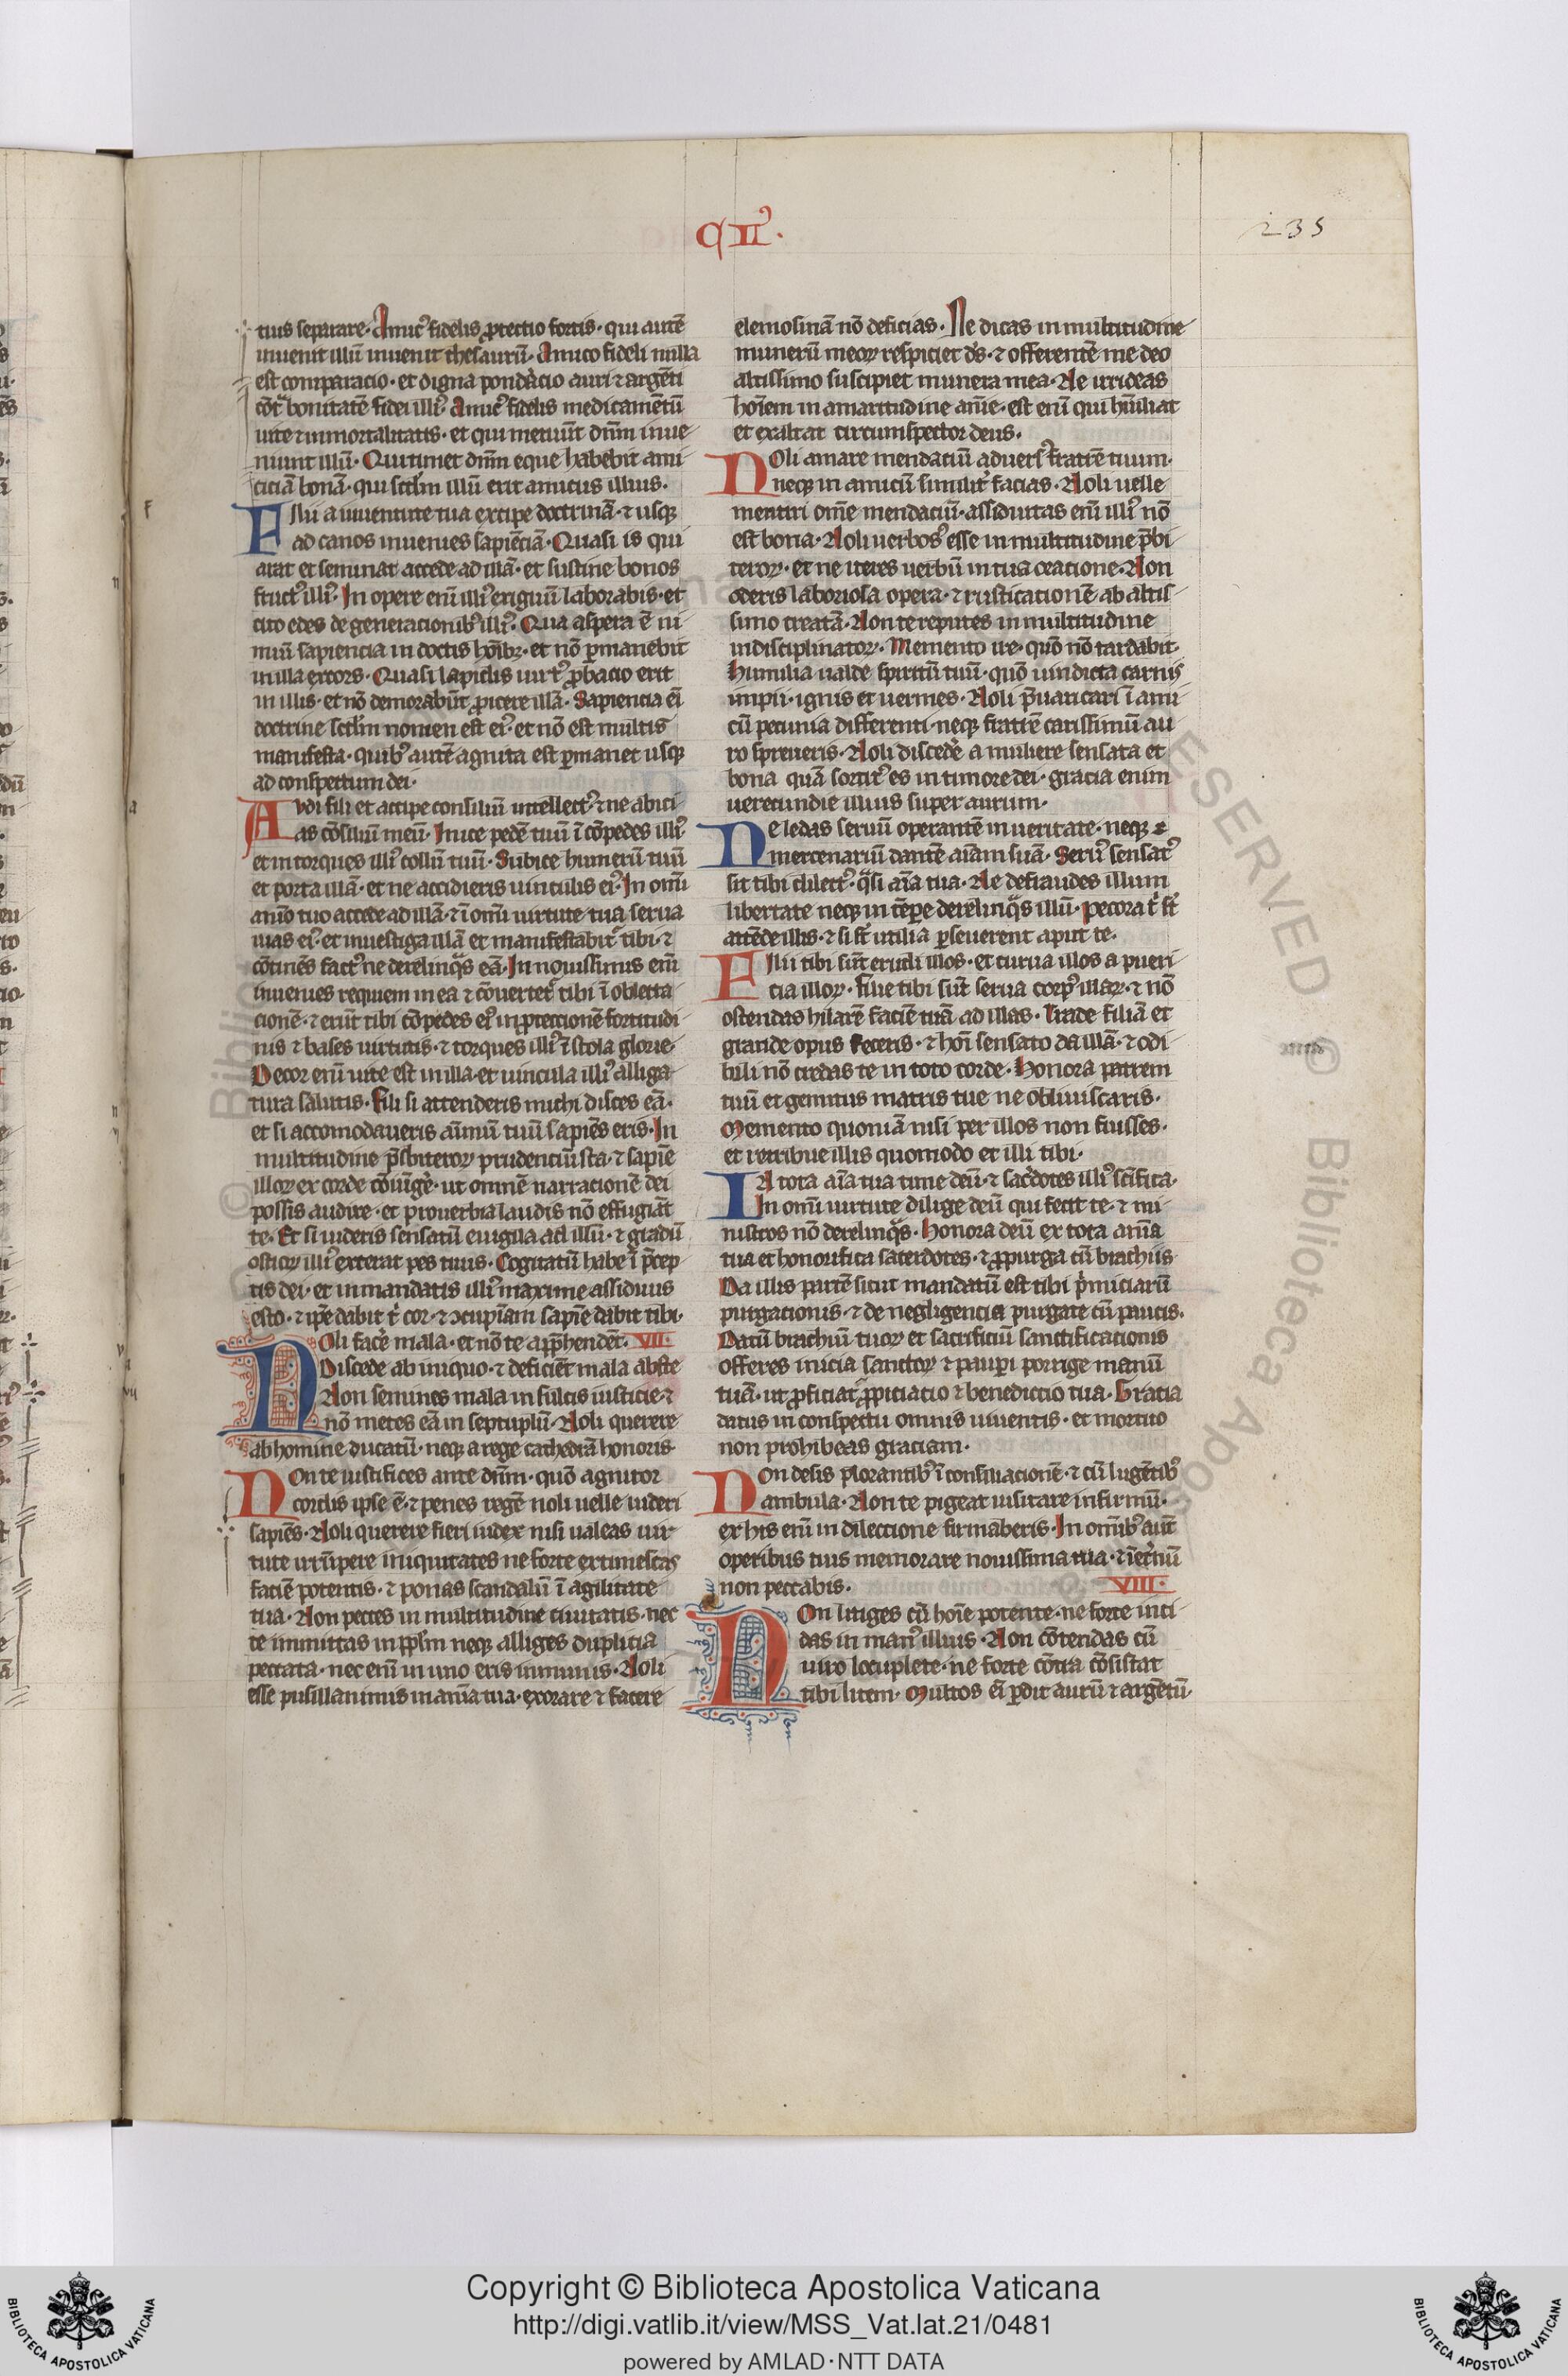 CII.
235
tuis separare. Amicꝰ fidelis ꝓtectio fortis. qui autē
inuenit illū inuenit thesaurū. Amico fideli nulla
est comparacio. et digna ponderacio auri ⁊ argēti
cōt̄ bonitatē fidei illiꝰ. Amicꝰ fidelis medicamētū
uite ⁊ inmortalitatis. et qui metuūt dn̄m inue
niunt illū. Qui timet dn̄m eque habebit ami
ciciā bonā. qui scd̄m illū erit amicus illius.
Fili a iuuentute tua excipe doctrinā. ⁊ usqꝫ
ad canos inuenies sapiēciā. Quasi is qui
arat et seminat accede ad illā. et sustine bonos
fructꝰ illiꝰ. In opere enī illiꝰ exiguū laborabis. et
cito edes de generacionibꝰ illiꝰ. Qua aspera ē ni
miū sapiencia in doctis hoībꝫ. et nō ꝑmanebit
in illa excors. Quasi lapidis uirtꝰ ꝓbacio erit
in illis. et nō demorabūt ꝓicere illā. Sapiencia eī
doctrine scd̄m nomen est eiꝰ. et nō est multis
manifesta. quibꝰ autē agnita est ꝑmanet usqꝫ
ad conspectum dei.
Audi fili et accipe consiliū intellectꝰ. ⁊ ne abici
as cōsiliū meū. Inice pedē tuū ī cōpedes illiꝰ.
et in torques illiꝰ collū tuū. Subice humerū tuū
et porta illā. et ne accidieris uinculis eiꝰ. In omī
animo tuo accede ad illā. ⁊ ī omī uirtute tua serua
uias eiꝰ. et inuestiga illā et manifestabit᷑ tibi. ⁊
cōtinēs factꝰ ne derelinqᷓs eā. In nouissimis enī
inuenies requiem in ea ⁊ cōuertet᷑ tibi ī oblecta
cionē. ⁊ erūt tibi cōpedes eiꝰ in ꝓteccionē fortitudi
nis ⁊ bases uirtutis. ⁊ torques illiꝰ ī stola glorie.
Decor enī uite est in illa. et uincula illiꝰ alliga
tura salutis. Fili si attenderis michi disces eā.
et si accomodaueris aīmū tuū sapiēs eris. In
multitudine p̄sbiteroꝝ prudenciū sta. ⁊ sapīe
illoꝝ ex corde cōiūgere. ut omnē narracionē dei
possis audire. et prouerbia laudis nō effugiāt
te. Et si uideris sensatū euigila ad illū. ⁊ gradū
ostioꝝ illiꝰ exterat pes tuus. Cogitatū habe ī p̄cep
tis dei. et in mandatis illiꝰ maxime assiduus
esto. ⁊ ip̄e dabit t' cor. ⁊ ↄcupīam sapīe dabit tibi.
Noli facere mala. et nō te app̄hendēt. VII.
Discede ab iniquo. ⁊ deficiēt mala abs te
Non semines mala in sulcis iusticie. ⁊
nō metes eā in septuplū. Noli querere
ab homine ducatū. neqꝫ a rege cathedrā honoris.
Non te iustifices ante dn̄m. quō agnitor
cordis ipse ē. ⁊ penes regē noli uelle uideri
sapiēs. Noli querere fieri iudex nisi ualeas uir
tute irrūpere iniquitates ne forte extimescas
faciē potentis. ⁊ ponas scandalū ī agilitate
tua. Non pecces in multitudine ciuitatis. nec
te inmittas in pp̄lm neqꝫ alliges duplicia
peccata. nec enī in uno eris inmunis. Noli
esse pusillanimis in anīa tua. exorare ⁊ facere
elemosinā nō deficias. Ne dicas in multitudine
munerū meoꝝ respiciet ds̄. ⁊ offerente me deo
altissimo suscipiet munera mea. Ne irrideas
hoīem in amaritudine anīe. est enī qui humiliat
et exaltat circumspector deus.
Noli amare mendatiū aduersꝰ fratrē tuum.
neqꝫ in amicū similit᷑ facias. Noli uelle
mentiri omē mendaciū. assiduitas enī illiꝰ nō
est bona. Noli uerbosꝰ esse in multitudine p̄sbi
teroꝝ. et ne iteres uerbū in tua oratione. Non
oderis laboriosa opera. ⁊ rusticationē ab altis
simo creatā. Non te reputes in multitudine
indisciplinatoꝝ. Memento ire. quō nō tardabit.
Humilia ualde spiritū tuū. quō uindicta carnis
impii. ignis et uermes. Noli p̄uaricari ī ami
cū pecunia differenti. neqꝫ fratrē carissimū au
ro spreueris. Noli discedere a muliere sensata et
bona quā sortitꝰ es in timore dei. gracia enim
uerecundie illius super aurum.
Ne ledas seruū operantē in ueritate. neqꝫ
mercenariū dantē aīam suā. Seruꝰ sensatꝰ
sit tibi dilectꝰ. qᷓsi aīa tua. Ne defraudes illum
libertate neqꝫ inopē derelinqᷓs illū. Pecora t' st̄
attēde illis. ⁊ si st̄ utilia ꝑseuerent aput te.
Filii tibi sūt erudi illos. et curua illos a pueri
cia illoꝝ. Filie tibi sūt serua corpꝰ illaꝝ. ⁊ nō
ostendas hilarē faciē tuā ad illas. Trade filiā et
grande opus feceris. ⁊ hoī sensato da illā. ⁊ odi
bili nō credas te in toto corde. Honora patrem
tuū et gemitus matris tue ne obliuiscaris.
Memento quoniā nisi per illos non fuisses.
et retribue illis quomodo et illi tibi.
In tota aīa tua time deū. ⁊ sac̓dotes illiꝰ sc̄ifica.
In omī uirtute dilige deū qui fecit te. ⁊ mi
nistros nō derelinqᷓs. Honora deū ex tota anīa
tua et honorifica sacerdotes. ⁊ ꝓpurga cū brachiis.
Da illis partē sicut mandatū est tibi p'miciarū
purgacionis. ⁊ de negligencia purgate cū paucis.
Datū brachiū tuoꝝ et sacrificiū sanctificacionis
offeres inicia sanctoꝝ ⁊ paupi porrige manū
tuā. ut ꝑficiat᷑ ꝓpiciacio ⁊ benediccio tua. Gratia
datus in conspectu omnis uiuentis. et mortuo
non prohibeas graciam.
Non desis plorantibꝰ ī consolacionē. ⁊ cū lugētibꝰ
ambula. Non te pigeat uisitare infirmū.
ex his enī in dileccione firmaberis. In omībꝰ aut̄
operibus tuis memorare nouissima tua. ⁊ īet̓nū
non peccabis. VIII.
Non litiges cū hoīe potente. ne forte inci
das in manꝰ illius. Non cōtendas cū
uiro locuplete. ne forte cōtra cōsistat
tibi litem. Multos eī ꝑdit aurū ⁊ argētū.
Copyright © Biblioteca Apostolica Vaticana
http://digi.vatlib.it/view/MSS_Vat.lat.21/0481
powered by AMLAD·NTT DATA
BIBLIOTECA APOSTOLICA VATICANA
BIBLIOTECA APOSTOLICA VATICANA